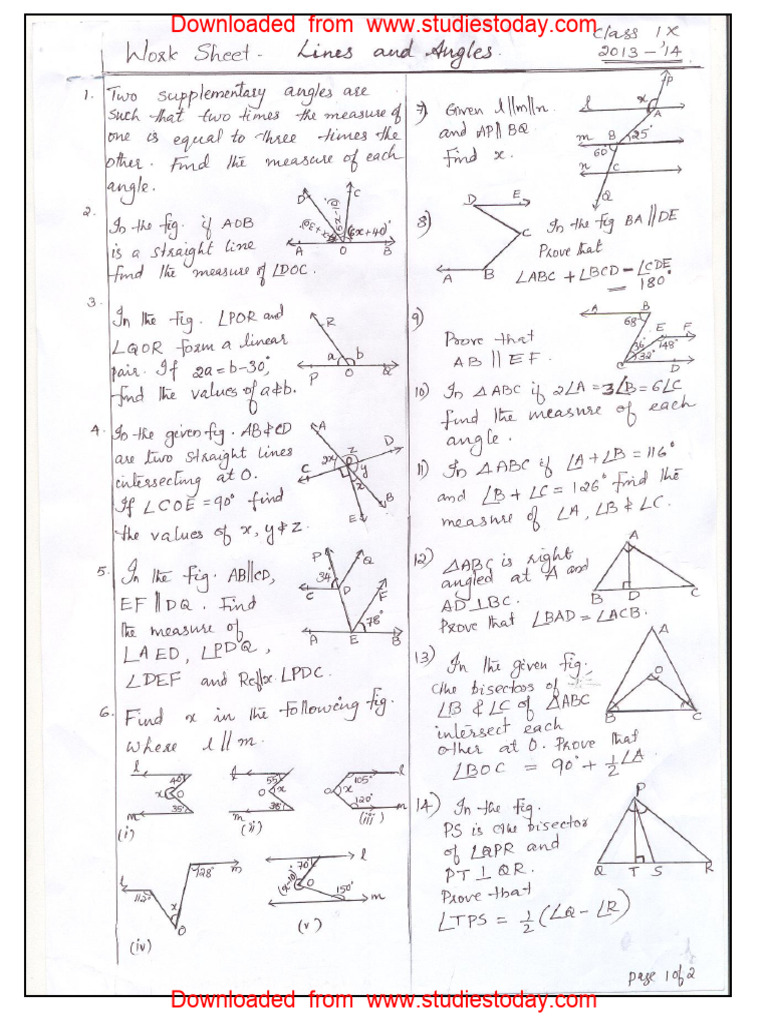 Downloaded from www.studiestoday.com
Work Sheet - Lines and Angles.
Class IX
2013-'14
1. Two supplementary angles are
such that two times the measure of
one is equal to three times the
other. Find the measure of each
angle.
2. In the fig. if AOB
is a straight line
find the measure of ∠DOC.
D
C
(6x+40)°
A
O
B
3. In the fig. ∠POR and
∠QOR form a linear
pair. If 2a = b-30°,
find the values of a & b.
R
a
b
P
O
Q
4. In the given fig. AB & CD
are two straight lines
intersecting at O.
If ∠COE = 90° find
the values of x, y & z.
A
D
2x
z
y
C
x
B
E
5. In the fig. AB∥CD,
EF∥DQ. Find
the measure of
∠AED, ∠PDQ,
∠DEF and Reflex ∠PDC.
P
Q
34
C
D
F
78°
A
E
B
6. Find x in the following fig.
where l∥m.
l
40°
x
O
35°
m
(i)
l
55°
O
x
38°
m
(ii)
105°
l
O
x
120°
m
(iii)
l
112°
128°
m
x
O
(iv)
70°
l
O
150°
m
(v)
7) Given l∥m∥n
and AP∥BQ
find x.
P
l
x
A
m
B
25°
60°
n
C
Q
8) In the fig BA∥DE
Prove that
∠ABC + ∠BCD - ∠CDE
= 180°
D
E
C
A
B
9) Prove that
AB∥EF.
A
B
68°
E
F
36°
148°
32°
C
D
10) In △ABC if 2∠A = 3∠B = 6∠C
find the measure of each
angle.
11) In △ABC if ∠A + ∠B = 116°
and ∠B + ∠C = 126° find the
measure of ∠A, ∠B & ∠C.
12) △ABC is right
angled at A and
AD⊥BC.
Prove that ∠BAD = ∠ACB.
A
B
D
C
13) In the given fig.
the bisectors of
∠B & ∠C of △ABC
intersect each
other at O. Prove that
∠BOC = 90° + ½∠A
A
O
B
C
14) In the fig.
PS is the bisector
of ∠QPR and
PT⊥QR.
Prove that
∠TPS = ½(∠Q - ∠R)
P
Q
T
S
R
Page 1 of 2
Downloaded from www.studiestoday.com